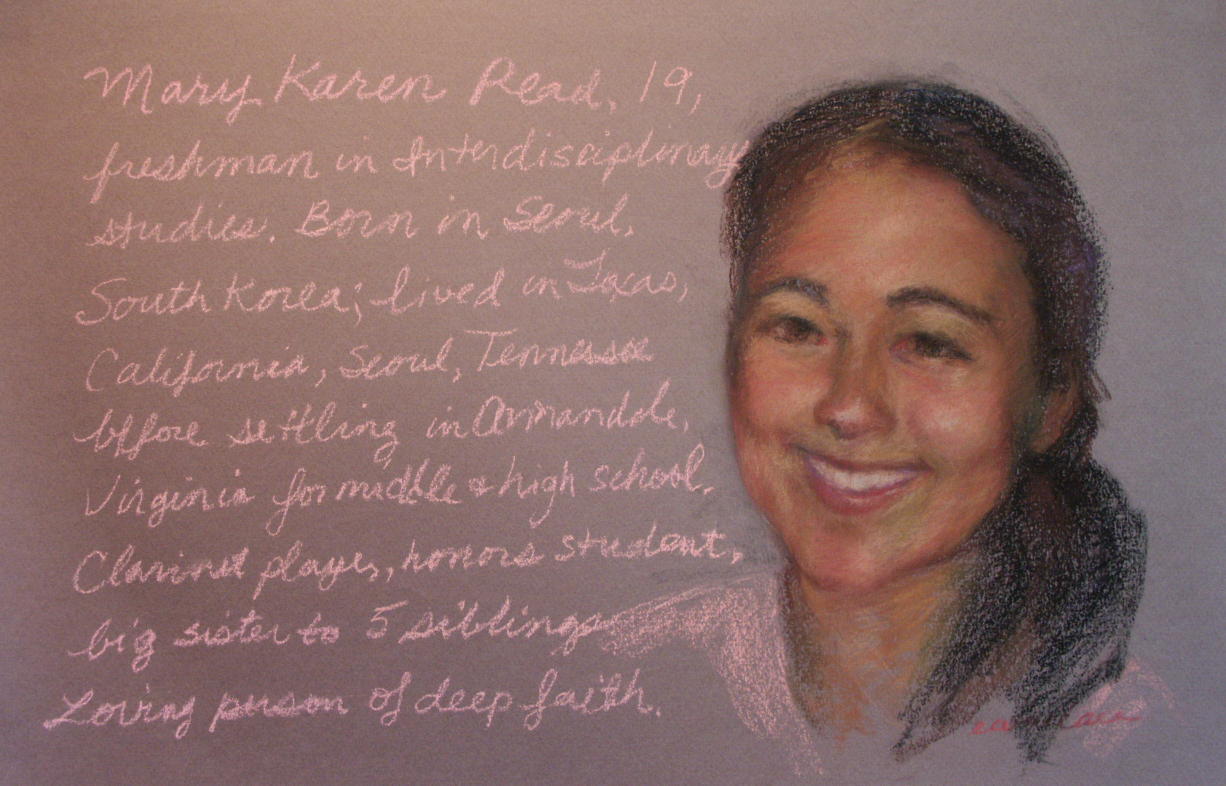 Mary Karen Read, 19,
freshman in Interdisciplinary
studies. Born in Seoul,
South Korea; lived in Texas,
California, Seoul, Tennessee
before settling in Annandale,
Virginia for middle & high school.
Clarinet player, honors student,
big sister to 5 siblings
Loving person of deep faith.